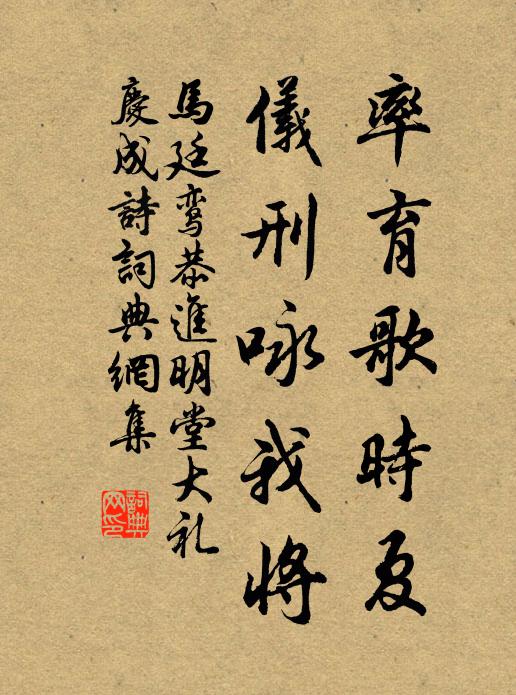 率育歌時夏
儀刑咏我將
馬廷鸾恭進明堂大礼
慶成詩詞典網集
詞典